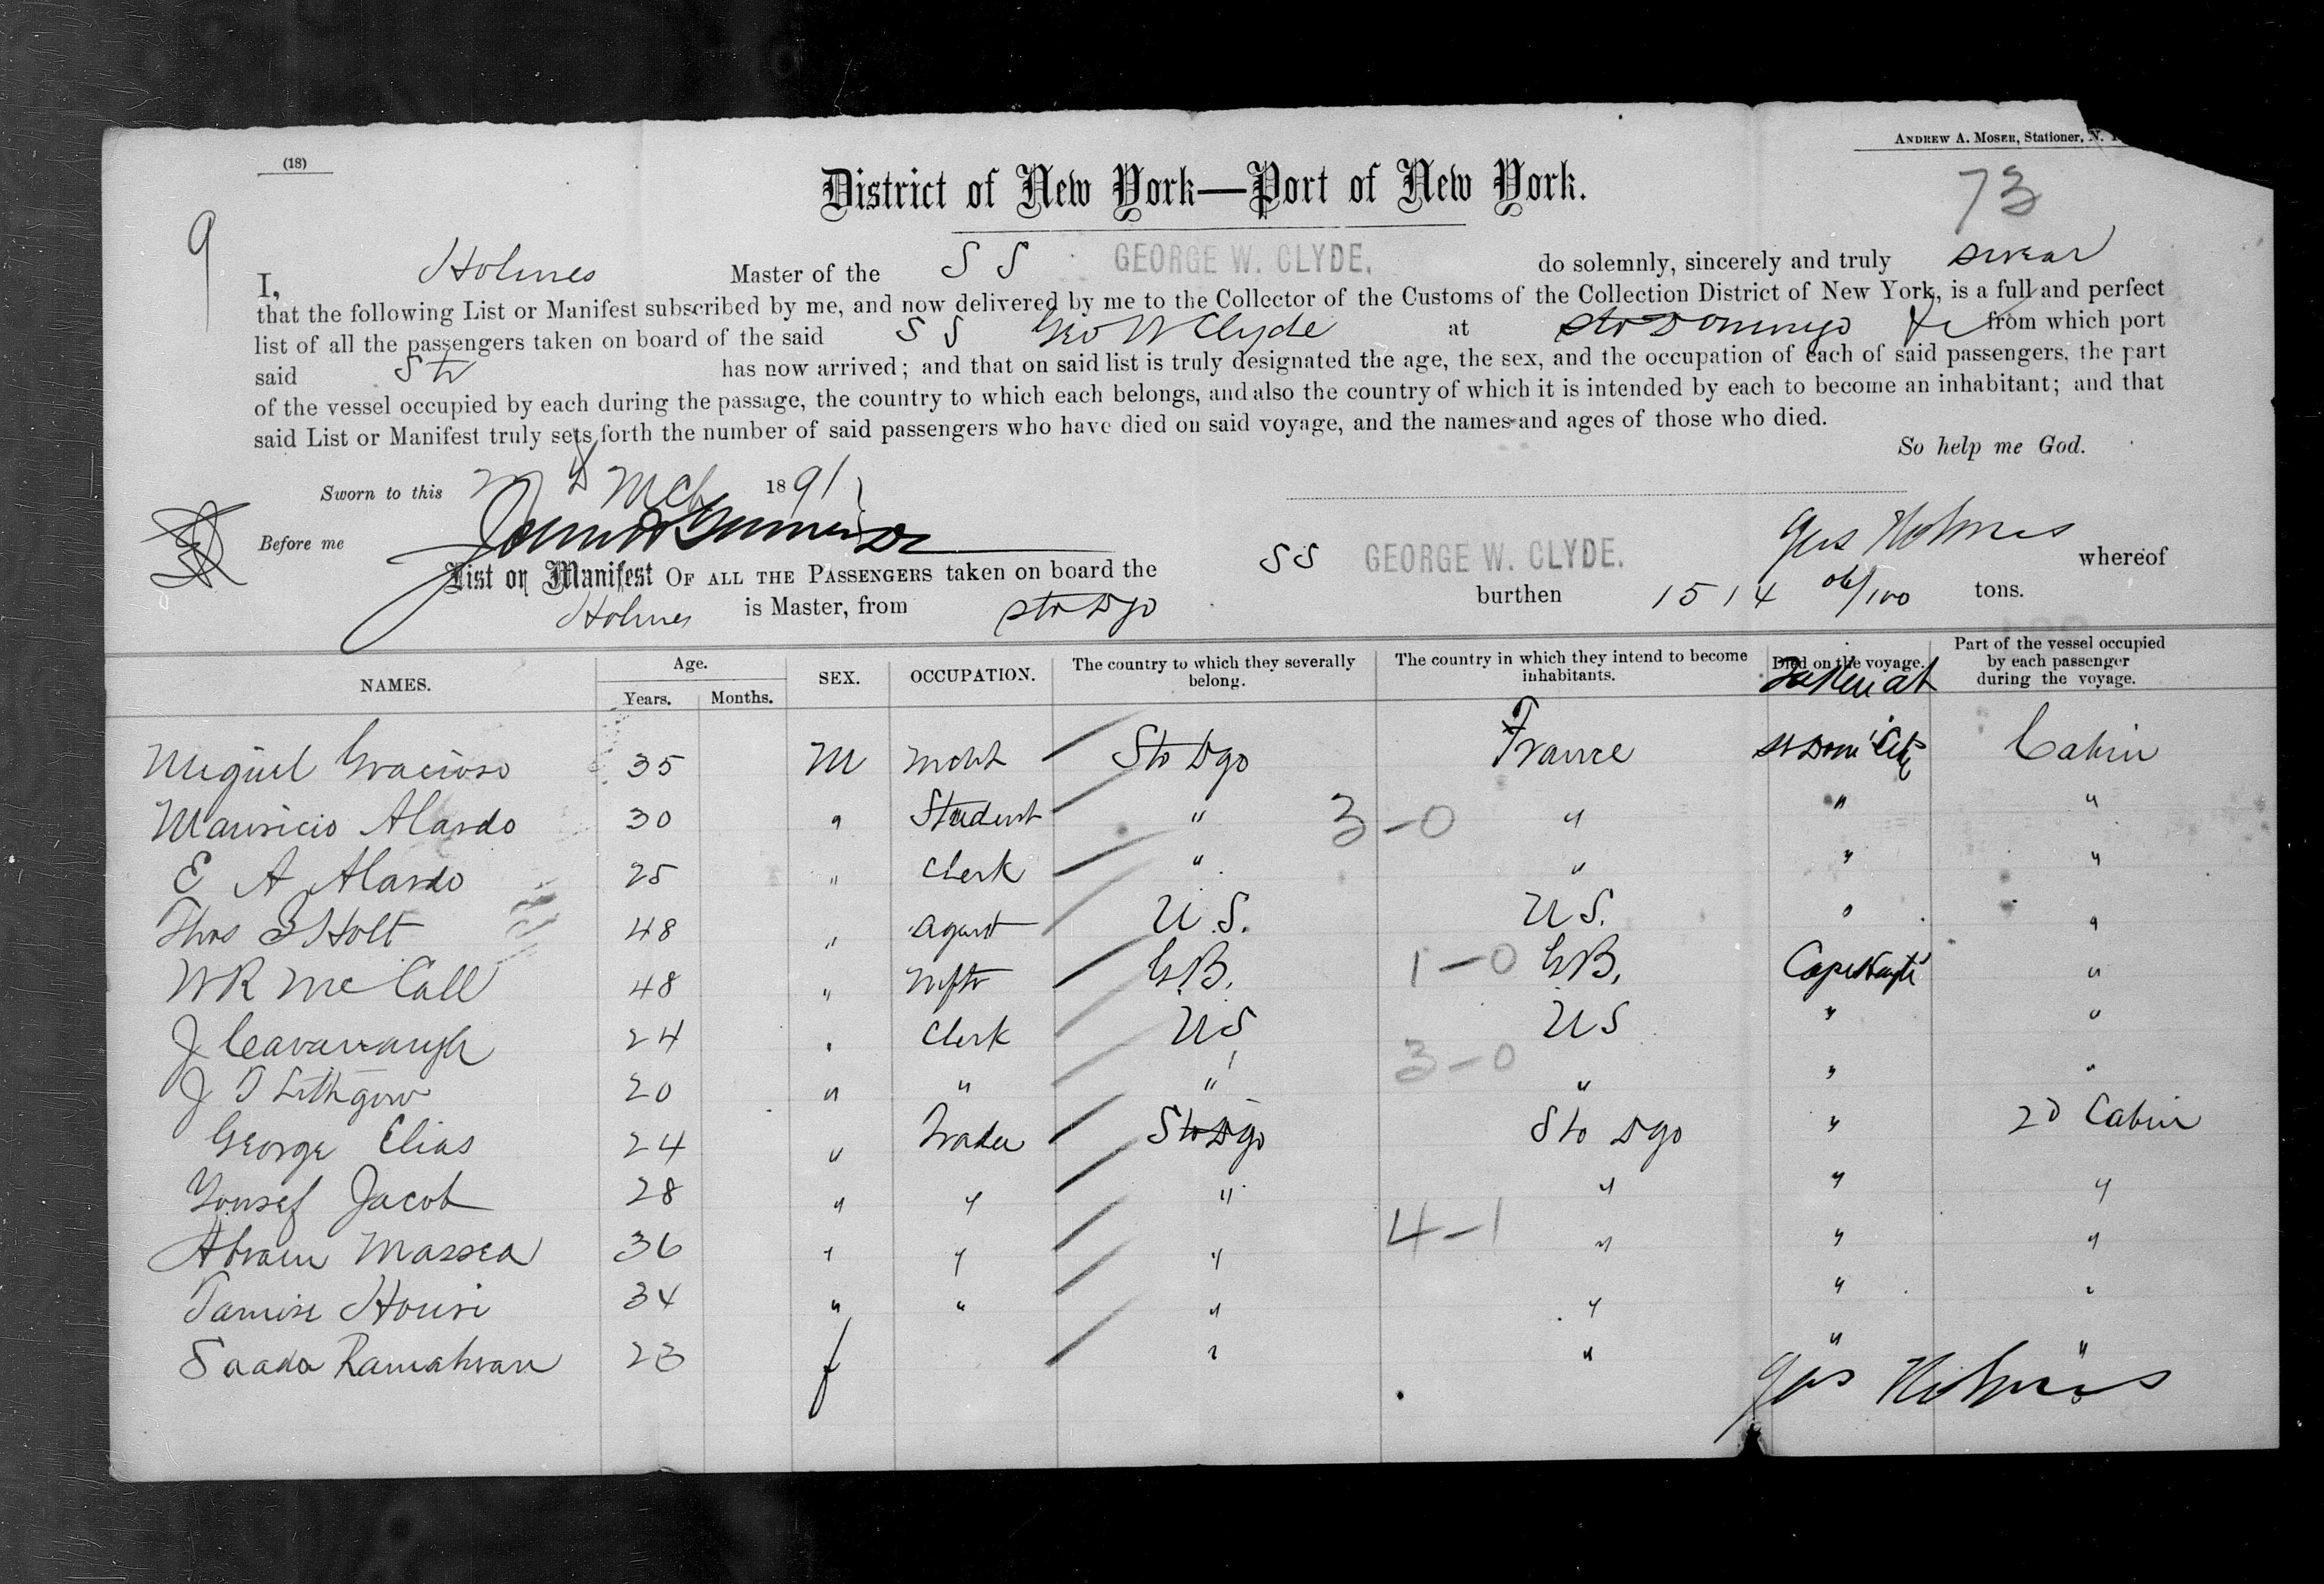 (18)
ANDREW A. MOSER, Stationer, N. Y
District of New York—Port of New York.
73
9
I, Holmes Master of the S S GEORGE W. CLYDE, do solemnly, sincerely and truly swear
that the following List or Manifest subscribed by me, and now delivered by me to the Collector of the Customs of the Collection District of New York, is a full and perfect
list of all the passengers taken on board of the said S S Geo W Clyde at Sto Domingo &c from which port
said Str has now arrived; and that on said list is truly designated the age, the sex, and the occupation of each of said passengers, the part
of the vessel occupied by each during the passage, the country to which each belongs, and also the country of which it is intended by each to become an inhabitant; and that
said List or Manifest truly sets forth the number of said passengers who have died on said voyage, and the names and ages of those who died.
So help me God.
Sworn to this Mch 1891
Before me
Jas Holmes
List or Manifest OF ALL THE PASSENGERS taken on board the SS GEORGE W. CLYDE. whereof
Holmes is Master, from Sto Dgo burthen 1514 06/100 tons.
NAMES. Age. Years. Months. SEX. OCCUPATION. The country to which they severally belong. The country in which they intend to become inhabitants. Died on the voyage. Taken at Part of the vessel occupied by each passenger during the voyage.
Miguel Gracioso 35 M Mcht Sto Dgo France St Dom' City Cabin
Mauricio Alardo 30 " Student " 3-0 " " "
E A Alardo 25 " Clerk " " " "
Thos Holt 48 " Agent U.S. U S. " "
W R McCall 48 " Mftr G.B. 1-0 G B. Cape Hayti "
J Cavanaugh 24 " Clerk U S U S " "
J T Lithgow 20 " " " 3-0 " " "
George Elias 24 " Trader Sto Dgo Sto Dgo " 2D Cabin
Yousef Jacob 28 " " " " " "
Abram Massea 36 " " " 4-1 " " "
Tamise Housi 34 " " " " " "
Saada Ramahvan 23 f " " " "
Jas Holmes